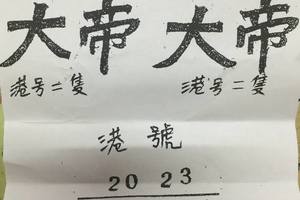 大帝 大帝
港号二隻 港号二隻
港號
20 23